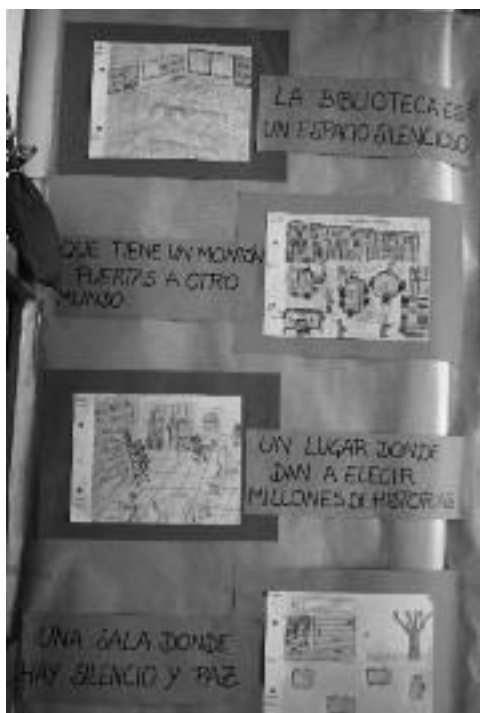 LA BIBLIOTECA ES
UN ESPACIO SILENCIOSO
QUE TIENE UN MONTÓN
PUERTAS A OTRO
MUNDO
UN LUGAR DONDE
DAN A ELEGIR
MILLONES DE HISTORIAS
UNA SALA DONDE
HAY SILENCIO Y PAZ